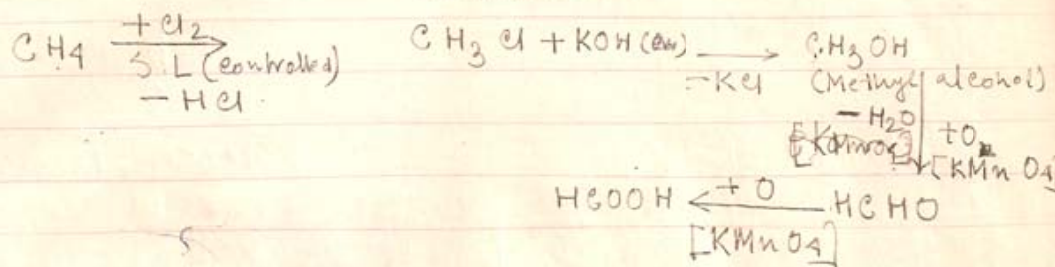 CH4 +Cl2 S.L (controlled) −HCl CH3Cl + KOH(aq) −KCl CH3OH
(Methyl alcohol)
−H2O +O [KMnO4]
HCOOH +O [KMnO4] HCHO